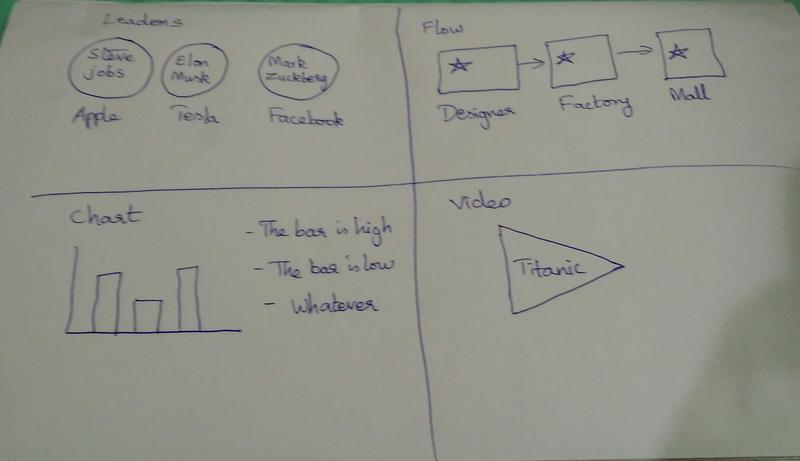 Leaders
Steve
jobs
Elon
Musk
Mark
Zuckberg
Apple
Tesla
Facebook
Flow
Designer
Factory
Mall
Chart
- The bar is high
- The bar is low
- Whatever
Video
Titanic